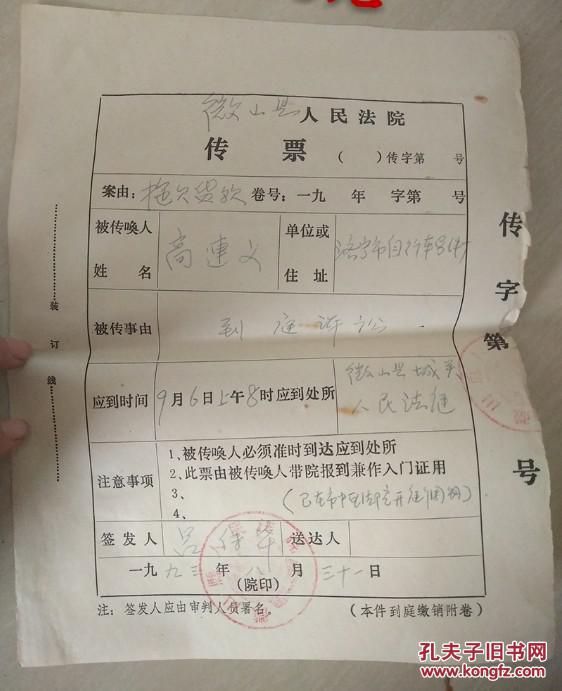 微山县人民法院
传 票 （ ）传字第 号
案由：拖欠货款 卷号：一九 年 字第 号
被传唤人姓名 高连义 单位或住址 济宁市自行车
被传事由 到庭诉讼
应到时间 9月6日上午8时 应到处所 微山县城关人民法庭
注意事项
1、被传唤人必须准时到达应到处所
2、此票由被传唤人带院报到兼作入门证用
3、
4、
签发人 吕 送达人
一九九三年八月三十一日
（院印）
注：签发人应由审判人员署名。
（本件到庭缴销附卷）
装订线
传字第 号
孔夫子旧书网
www.kongfz.com